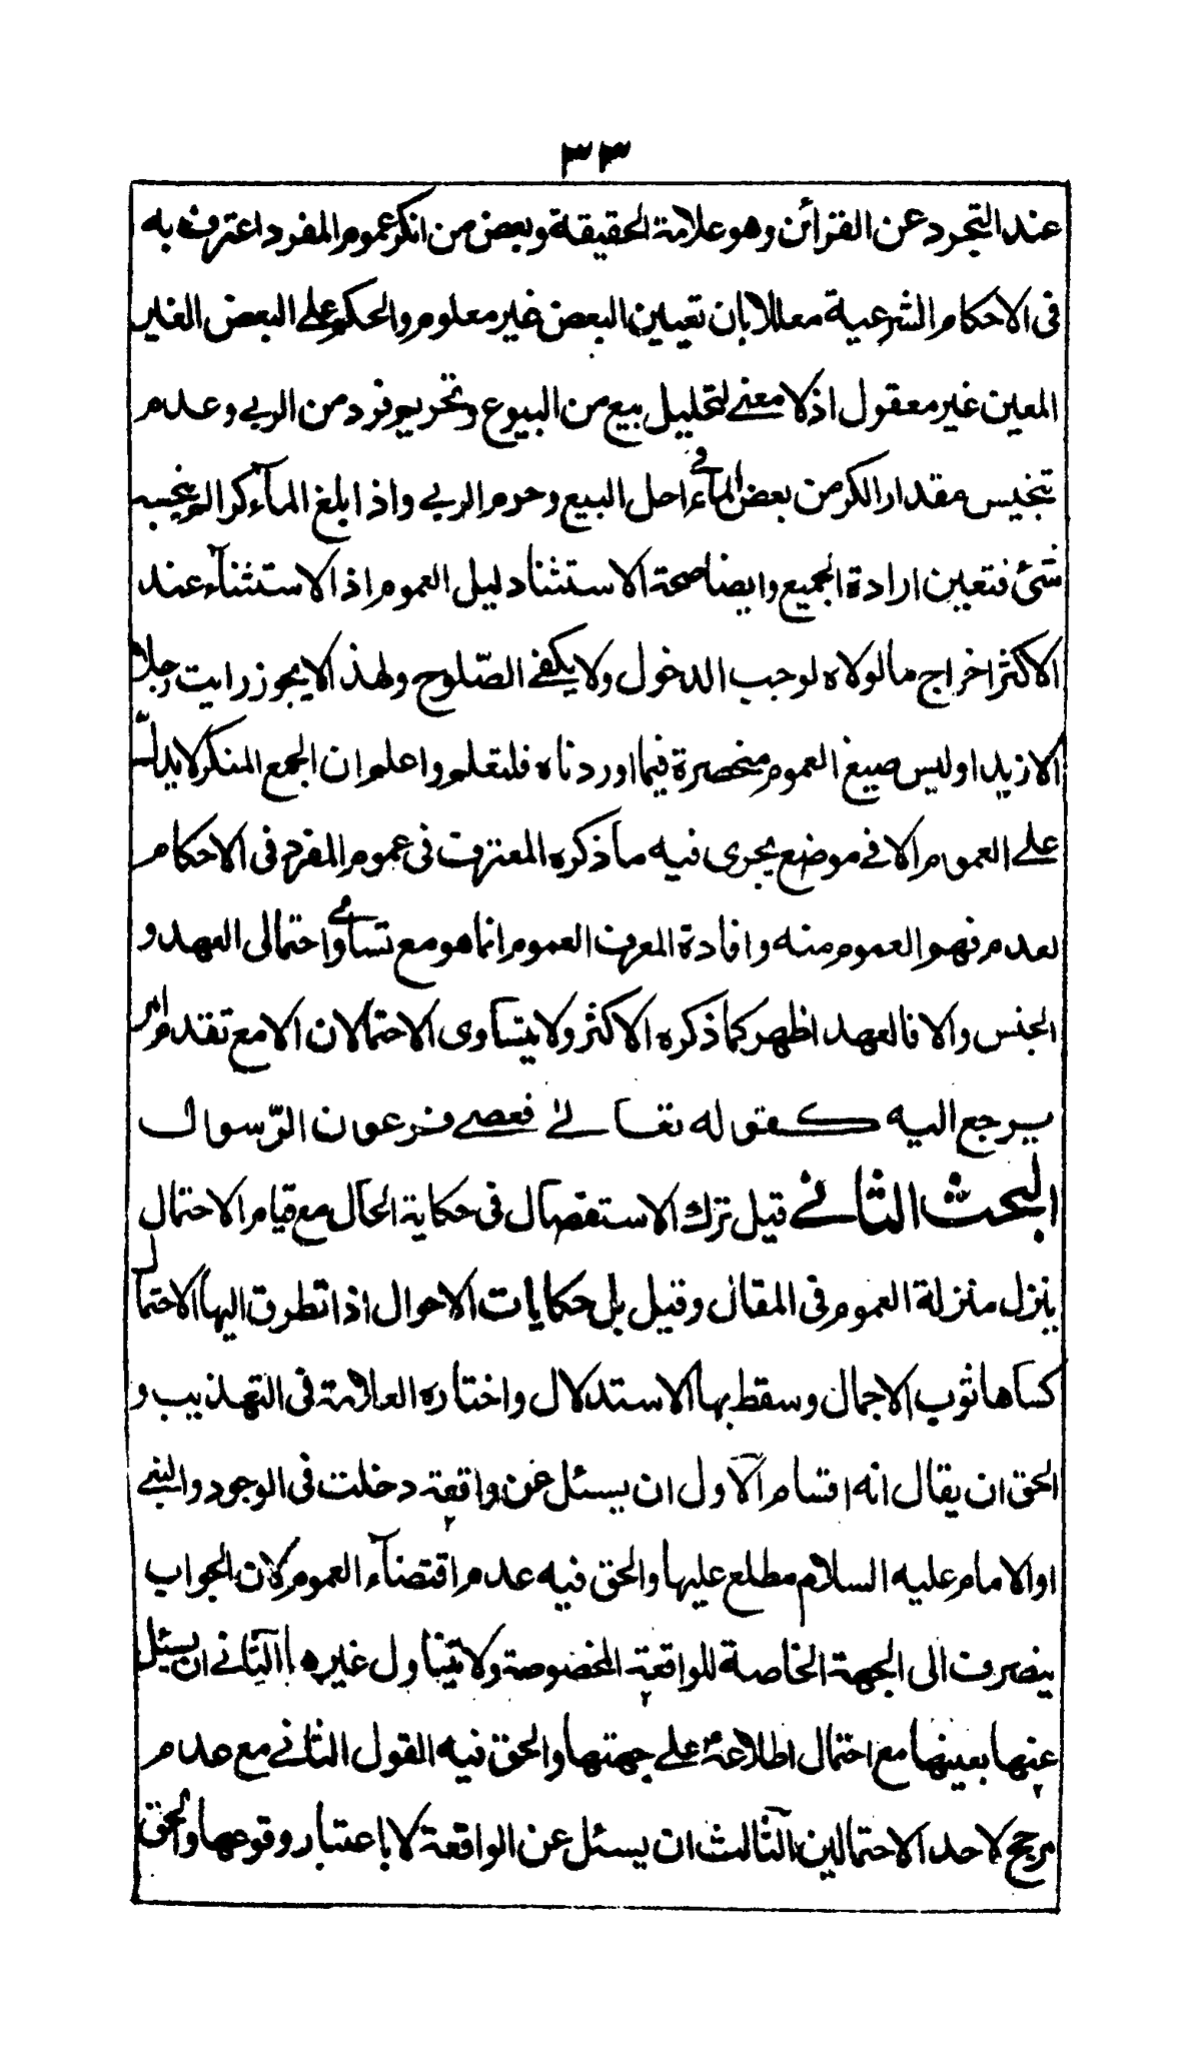 ٣٣
عند التجرد عن القرائن وهو علامة الحقيقة وبعض من انكر عموم المفرد اعترف به
فى الاحكام الشرعية معللا بان تعيين البعض غير معلوم والحكم على البعض الغير
المعين غير معقول اذ لا معنى لتحليل بيع من البيوع وتحريم فرد من الربى وعدم
تنجيس مقدار الكر من بعض الماء فى احل البيع وحرم الربى واذا بلغ المآء كرا لم ينجسه
شئ فتعين ارادة الجميع وايضا صحة الاستثنا دليل العموم اذ الاستثنآء عند
الاكثر اخراج ما لولاه لوجب الدخول ولا يكفى الصّلوح ولهذا لا يجوز رايت رجلا
الا زيدا وليس صيغ العموم منحصرة فيما اوردناه فلتعلم واعلم ان الجمع المنكر لا يدلّ
على العموم الا فى موضع يجرى فيه ما ذكره المعترف فى عموم المفرد فى الاحكام
لعدم فهم العموم منه وافادة المعرف العموم انما هو مع تساوى احتمالى العهد و
الجنس والا فالعهد اظهر كما ذكره الاكثر ولا يتساوى الاحتمالان الا مع تقدم امر
يرجع اليه كقوله تعالى فعصى فرعون الرّسول
البحث الثانى قيل ترك الاستفصال فى حكاية الحال مع قيام الاحتمال
ينزل منزلة العموم فى المقال وقيل بل حكايات الاحوال اذا تطرق اليها الاحتمال
كساها ثوب الاجمال وسقط بها الاستدلال واختاره العلامة فى التهذيب و
الحق ان يقال انه اقسام الاول ان يسئل عن واقعة دخلت فى الوجود والنبى
او الامام عليه السلام مطلع عليها والحق فيه عدم اقتضآء العموم لان الجواب
ينصرف الى الجهة الخاصة للواقعة المخصوصة ولا يتناول غيرها الثانى ان يسئل
عنها بعينها مع احتمال اطلاعه على جهتها والحق فيه القول الثانى مع عدم
مرجح لاحد الاحتمالين الثالث ان يسئل عن الواقعة لا باعتبار وقوعها والحق